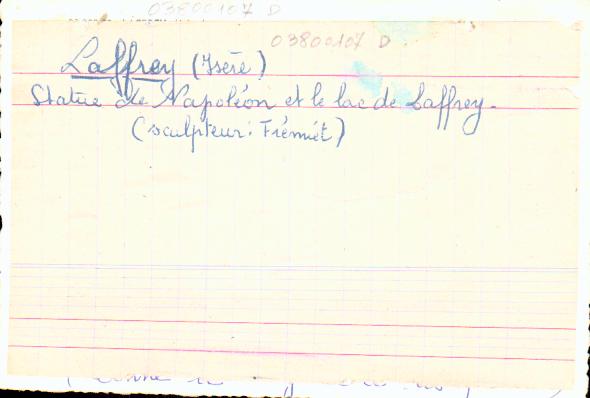 03800107 D
03800107 D
Laffrey (Isère)
Statue de Napoléon et le lac de Laffrey.
(sculpteur: Frémiet)